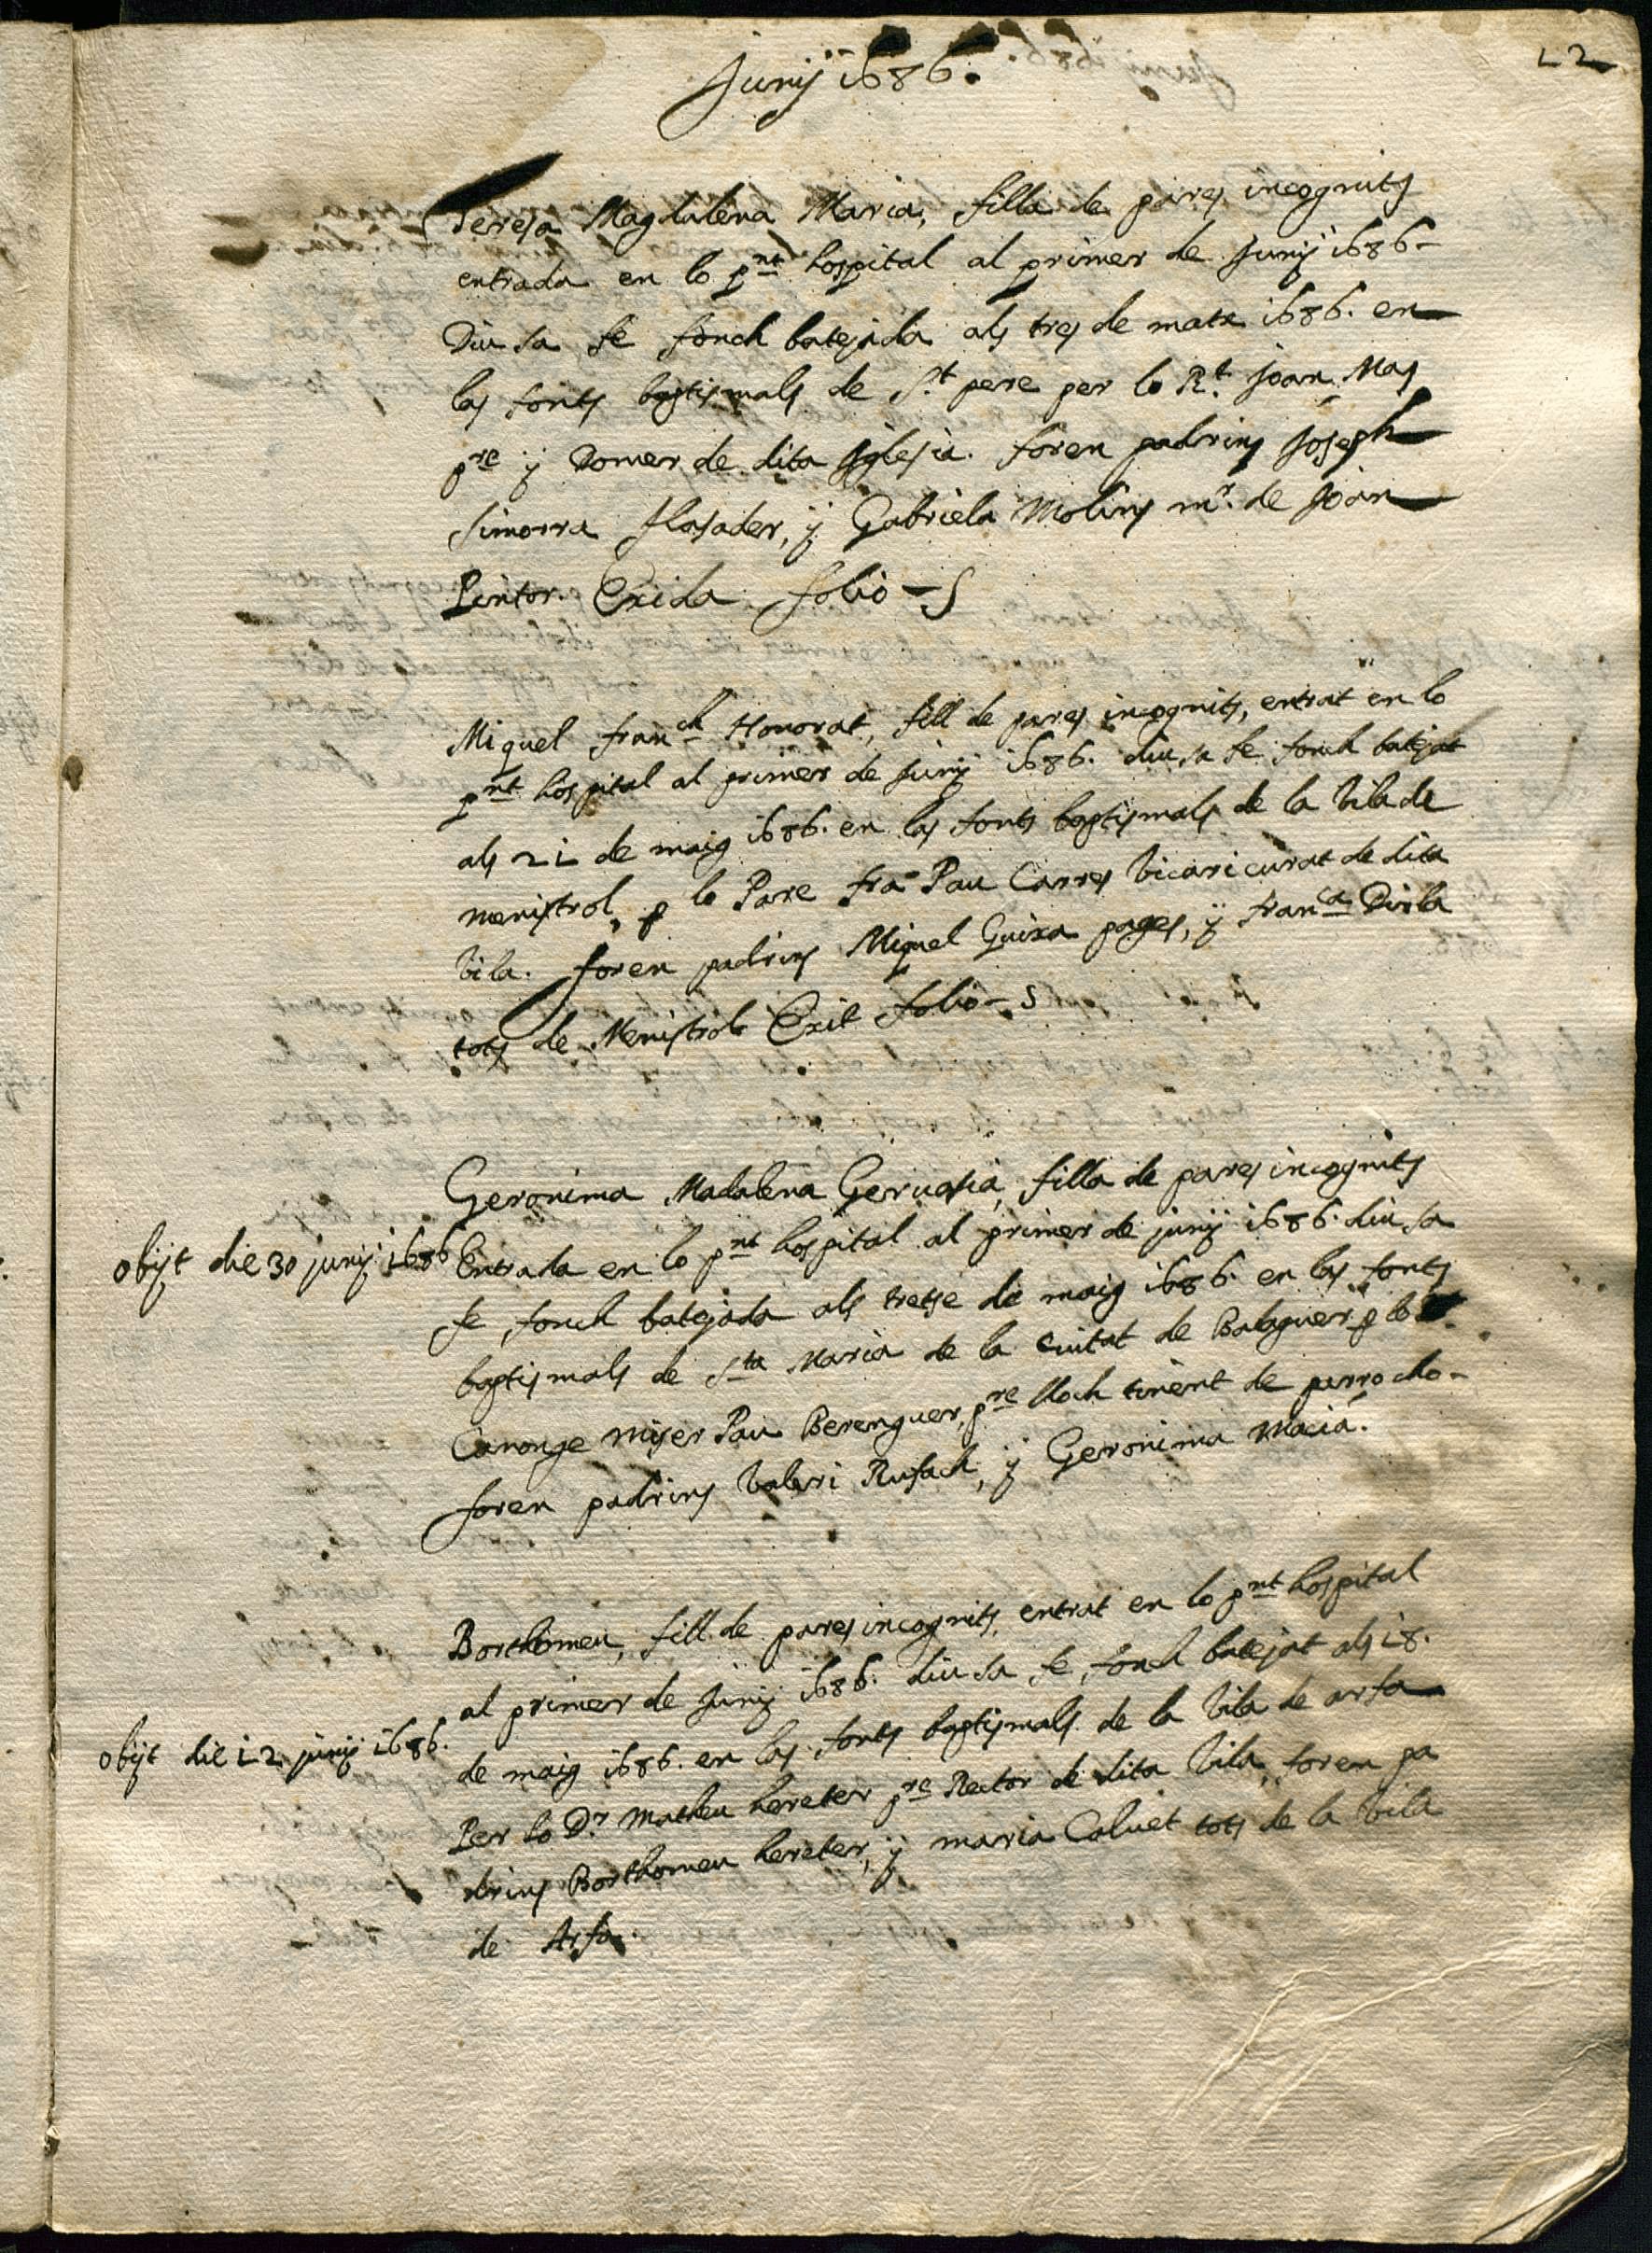 12
Junÿ 1686.
Teresa Magdalena Maria, filla de pares incognits
entrada en lo pnt hospital al primer de Junÿ 1686-
Diu sa se fonch batejada als tres de mars 1686. en
las fonts baptismals de St pere per lo Rt. Joan Mas
pre ÿ Domer de dita Iglesia. foren padrins Joseph
Simorra flasader, ÿ Gabriela Molins mr. de Joan
Pintor. Exida folio - 5
Miquel franch Honorat, fill de pares incognits, entrat en lo
pnt hospital al primer de Junÿ 1686. diu sa se fonch batejat
als 21 de maig 1686. en las fonts baptismals de la Vila de
menistrol, p lo Pare fra Pau Carres Vicari curat de dita
Vila. foren padrins Miquel Guixa pages, ÿ franca
tots de Menistrol Exit folio - 5
Geronima Madalena Geruasia, filla de pares incognits
obijt die 30 junÿ 1686
Entrada en lo pnt hospital al primer de junÿ 1686. diu sa
se fonch batejada als tretse de maig 1686. en las fonts
baptismals de Sta Maria de la Ciutat de Balaguer p lo
Canonge Miser Pau Berenguer, pre lloch tinent de parrocho-
foren padrins Valeri Rufach, ÿ Geronima Macia.
Borthomeu, fill de pares incognits, entrat en lo pnt hospital
al primer de Junÿ 1686. diu sa se fonch batejat als 18.
obijt die 12 junÿ 1686.
de maig 1686. en las fonts baptismals de la Vila de arfa
Per lo Dr Matheu hereter pre Rector de dita Vila, foren pa
drins Borthomeu hereter, ÿ maria Caluet tots de la Vila
de Arfa.